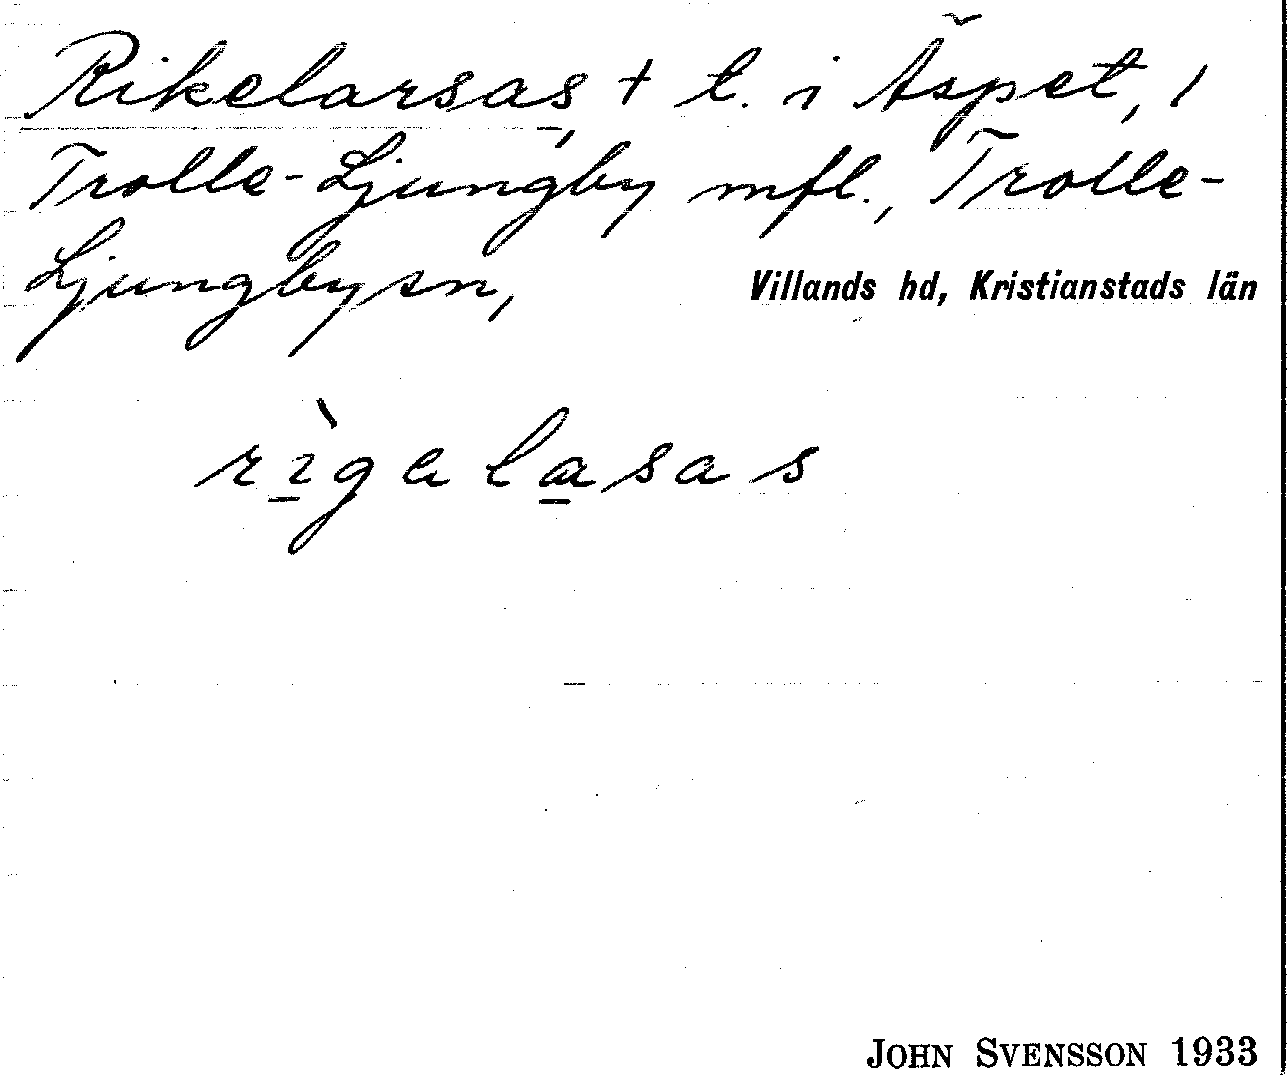 Rikelarsas, + t. i Äspet, 1
Trolle-Ljungby mfl., Trolle-
Ljungbysn, Villands hd, Kristianstads län
rìgalasas
JOHN SVENSSON 1933